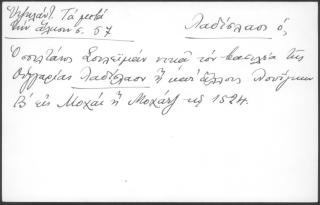 Τὰ μετὰ
τὴν ἅλωσιν σ. 57
Λαδίσλαος ὁ,
Ὁ σουλτάνος Σουλεϊμὰν νικᾶ τὸν βασιλέα τῆς
Οὑγγαρίας Λαδίσλαον ἢ κατ' ἄλλους Λουδοβῖκον
Β' εἰς Μοχὰτ ἢ Μοχὰτζ τῷ 1524.